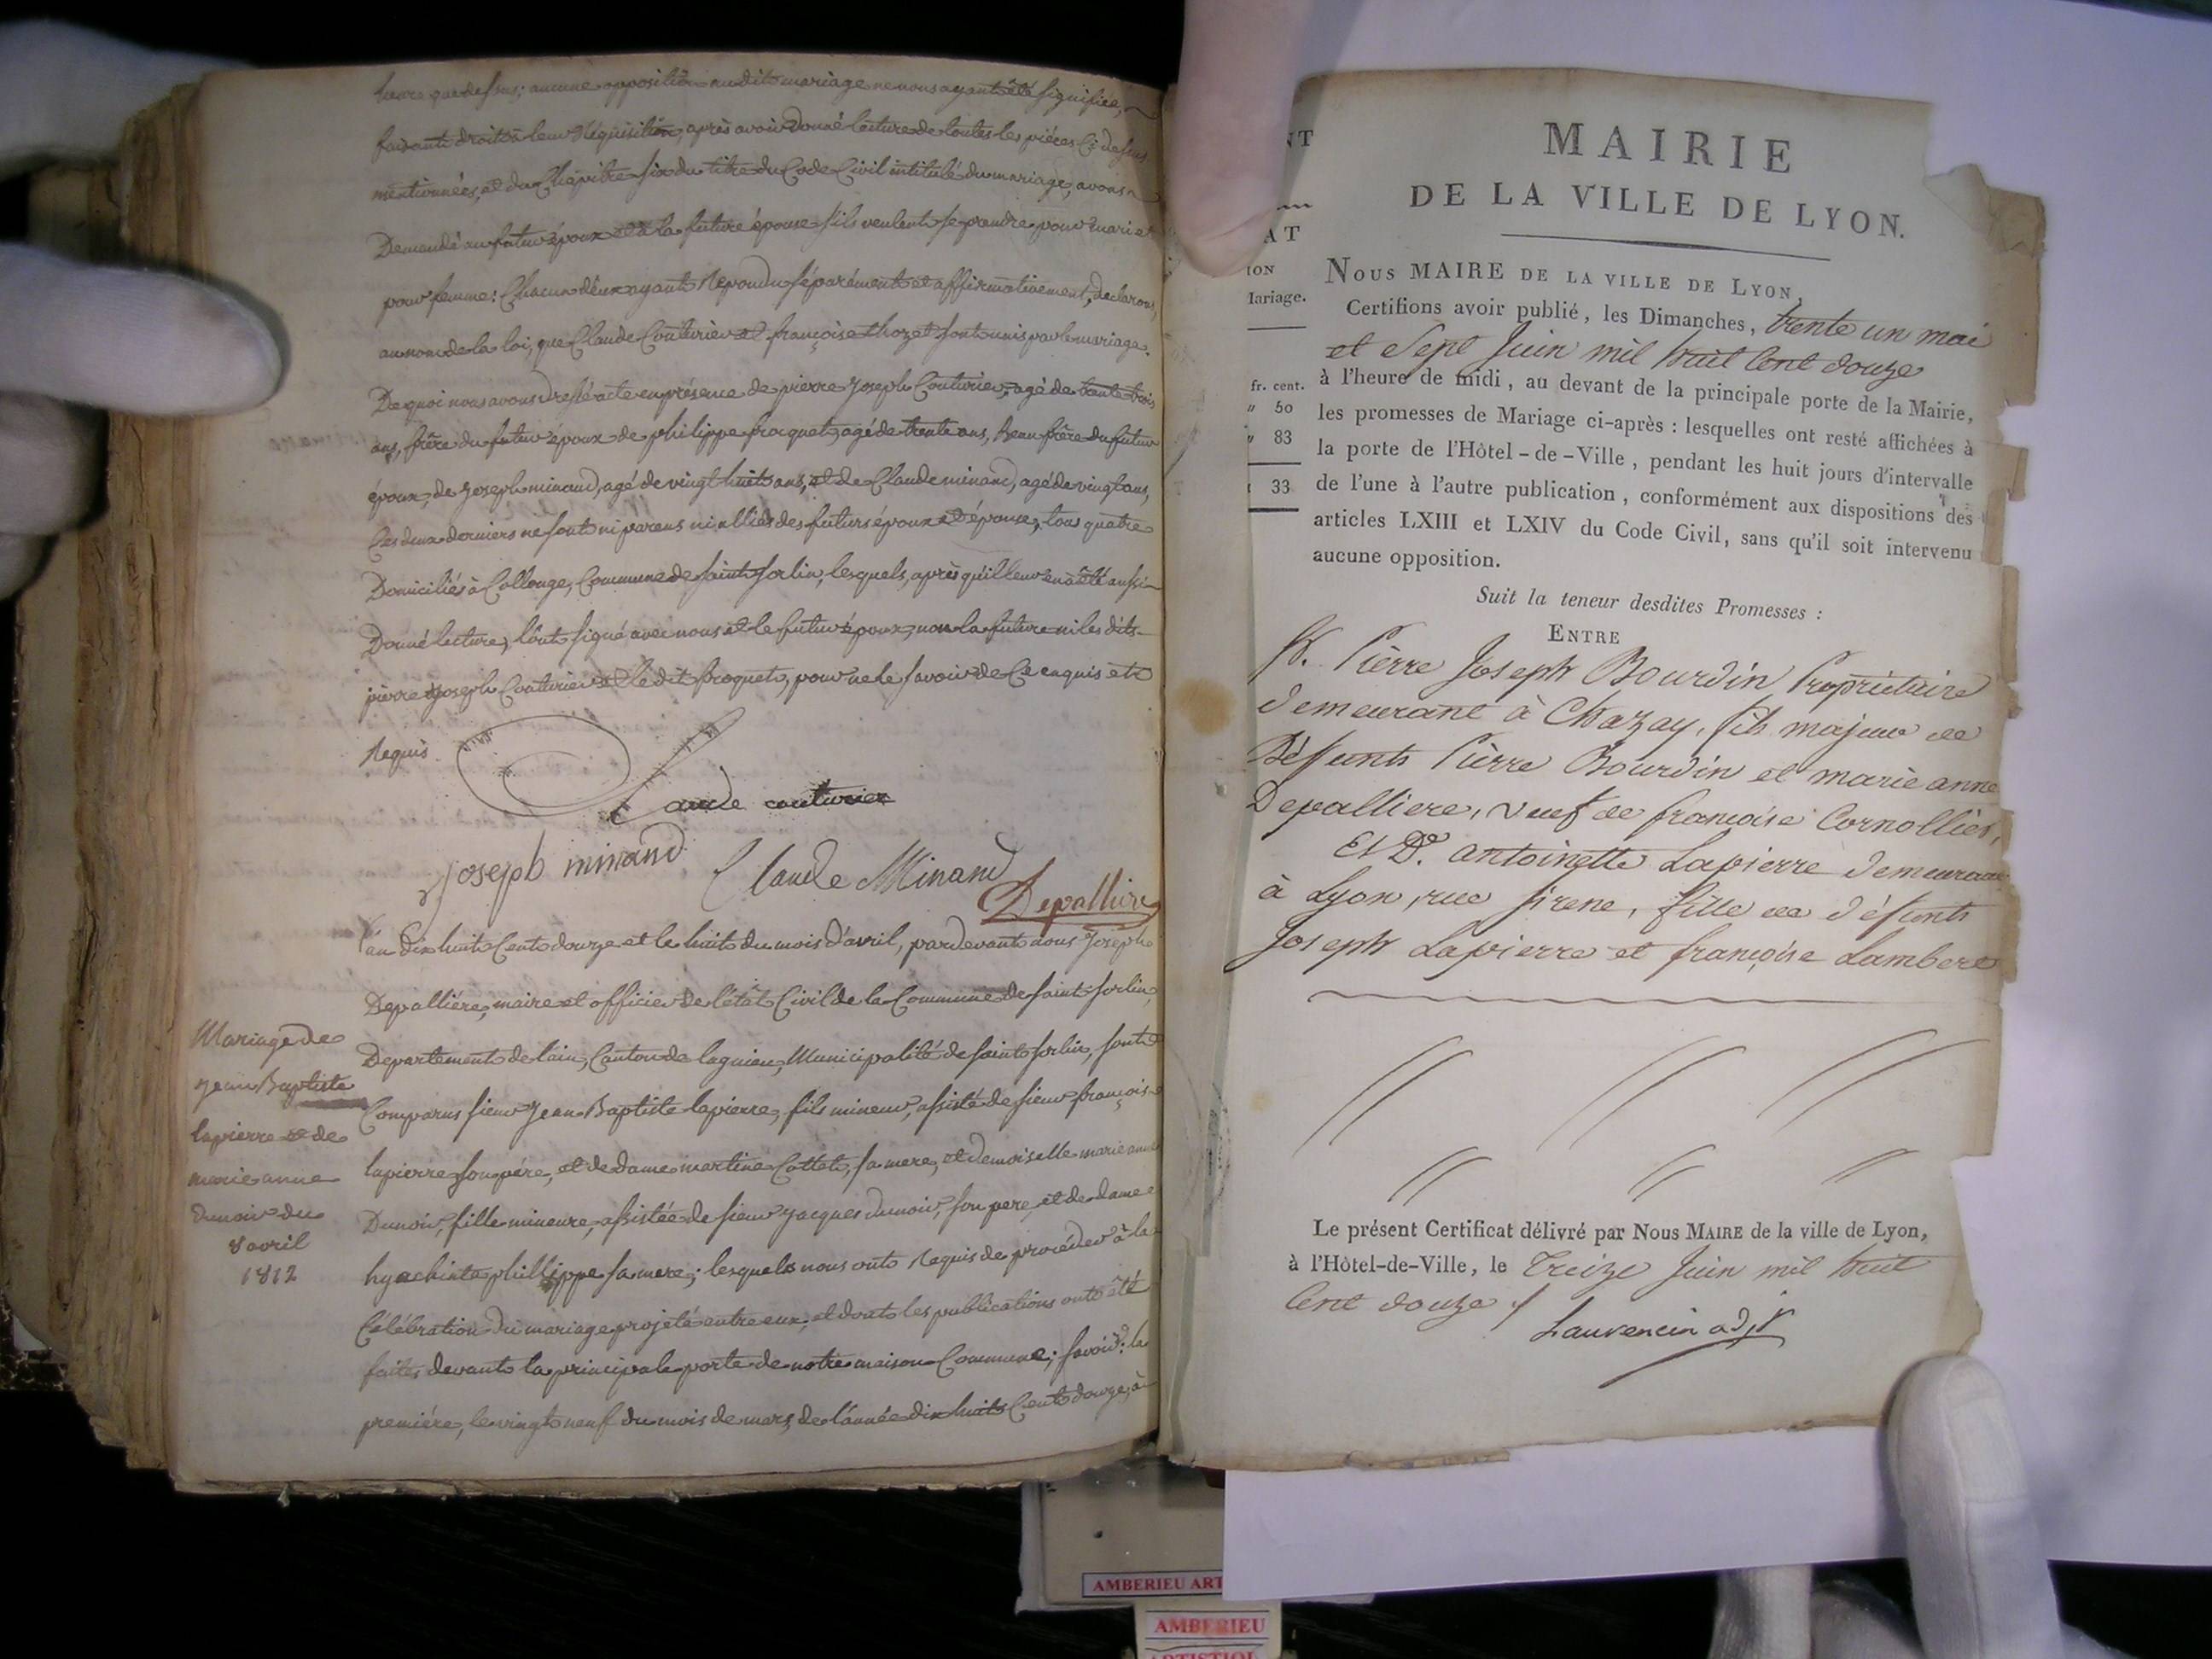 heure que dessus; aucune opposition au dit mariage ne nous ayant été signifiée,
faisant droit à leur Réquisition, après avoir Donné lecture de toutes les pièces Ci-dessus
mentionnées, et du Chapitre six du titre du Code Civil intitulé du mariage, avons
Demandé au futur époux et à la future épouse s'ils veulent se prendre pour mari et
pour femme: Chacun d'eux ayant Repondu séparément et affirmativement, declarons,
au nom de la loi, que Claude Couturier et françoise thozet sont unis par le mariage.
De quoi nous avons dressé acte en présence de pierre Joseph Couturier, agé de trente trois
ans, frère du futur époux de philippe froquet, agé de trente ans, Beau frère du futur
époux, de Joseph minand, agé de vingt huit ans, et de Claude minand, agé de vingt ans,
Ces deux derniers ne sont ni parens ni alliés des futurs époux et épouse, tous quatre
Domiciliés à Collonge, Commune de saint Sorlin, lesquels, après qu'il leur en a été aussi
Donné lecture, l'ont signé avec nous et le futur époux, non la future ni les dits
pierre Joseph Couturier et le dit froquet, pour ne le savoir de Ce enquis et
Requis.
Claude couturier
joseph minand Claude Minand
Depalliere
l'an Dix huit Cent douze et le huit du mois d'avril, pardevant nous Joseph
Depallière, maire et officier de l'état Civil de la Commune de saint Sorlin,
Departement de l'ain, Canton de lagnieu, Municipalité de saint Sorlin, sont
Comparus sieur Jean Baptiste lapierre, fils mineur, assisté de sieur françois
lapierre son père, et de dame martine Cottet, sa mere, et demoiselle marie anne
Dunoir, fille mineure, assistée de sieur jacques dunoir, son pere, et de dame
hyachinte phillippe sa mere; lesquels nous ont Requis de procéder à la
Célébration du mariage projeté entre eux, et dont les publications ont été
faites devant la principale porte de notre maison Commune; savoir: la
première, le vingt neuf du mois de mars, de l'année dix huit Cent douze, à
Mariage de
jean Baptiste
lapierre et de
marie anne
dunoir du
8 avril
1812
NT
AT
ION
Mariage.
fr. cent.
" 50
" 83
33
MAIRIE
DE LA VILLE DE LYON.
NOUS MAIRE DE LA VILLE DE LYON,
Certifions avoir publié, les Dimanches, trente un mai
et Sept Juin mil huit Cent douze
à l'heure de midi, au devant de la principale porte de la Mairie,
les promesses de Mariage ci-après : lesquelles ont resté affichées à
la porte de l'Hôtel-de-Ville, pendant les huit jours d'intervalle
de l'une à l'autre publication, conformément aux dispositions des
articles LXIII et LXIV du Code Civil, sans qu'il soit intervenu
aucune opposition.
Suit la teneur desdites Promesses :
ENTRE
Pierre Joseph Bourdin Propriétaire
demeurant à Chazay, fils majeur de
Défunts Pierre Bourdin et marie anne
Depalliere, veuf de françoise Cornollier,
Et De. antoinette Lapierre demeurant
à Lyon, rue sirene, fille de défunts
Joseph Lapierre et françoise Lambert
Le présent Certificat délivré par Nous MAIRE de la ville de Lyon,
à l'Hôtel-de-Ville, le Treize Juin mil huit
Cent douze
Laurencin adjt
AMBERIEU ART
AMBERIEU
ARTISTIQU